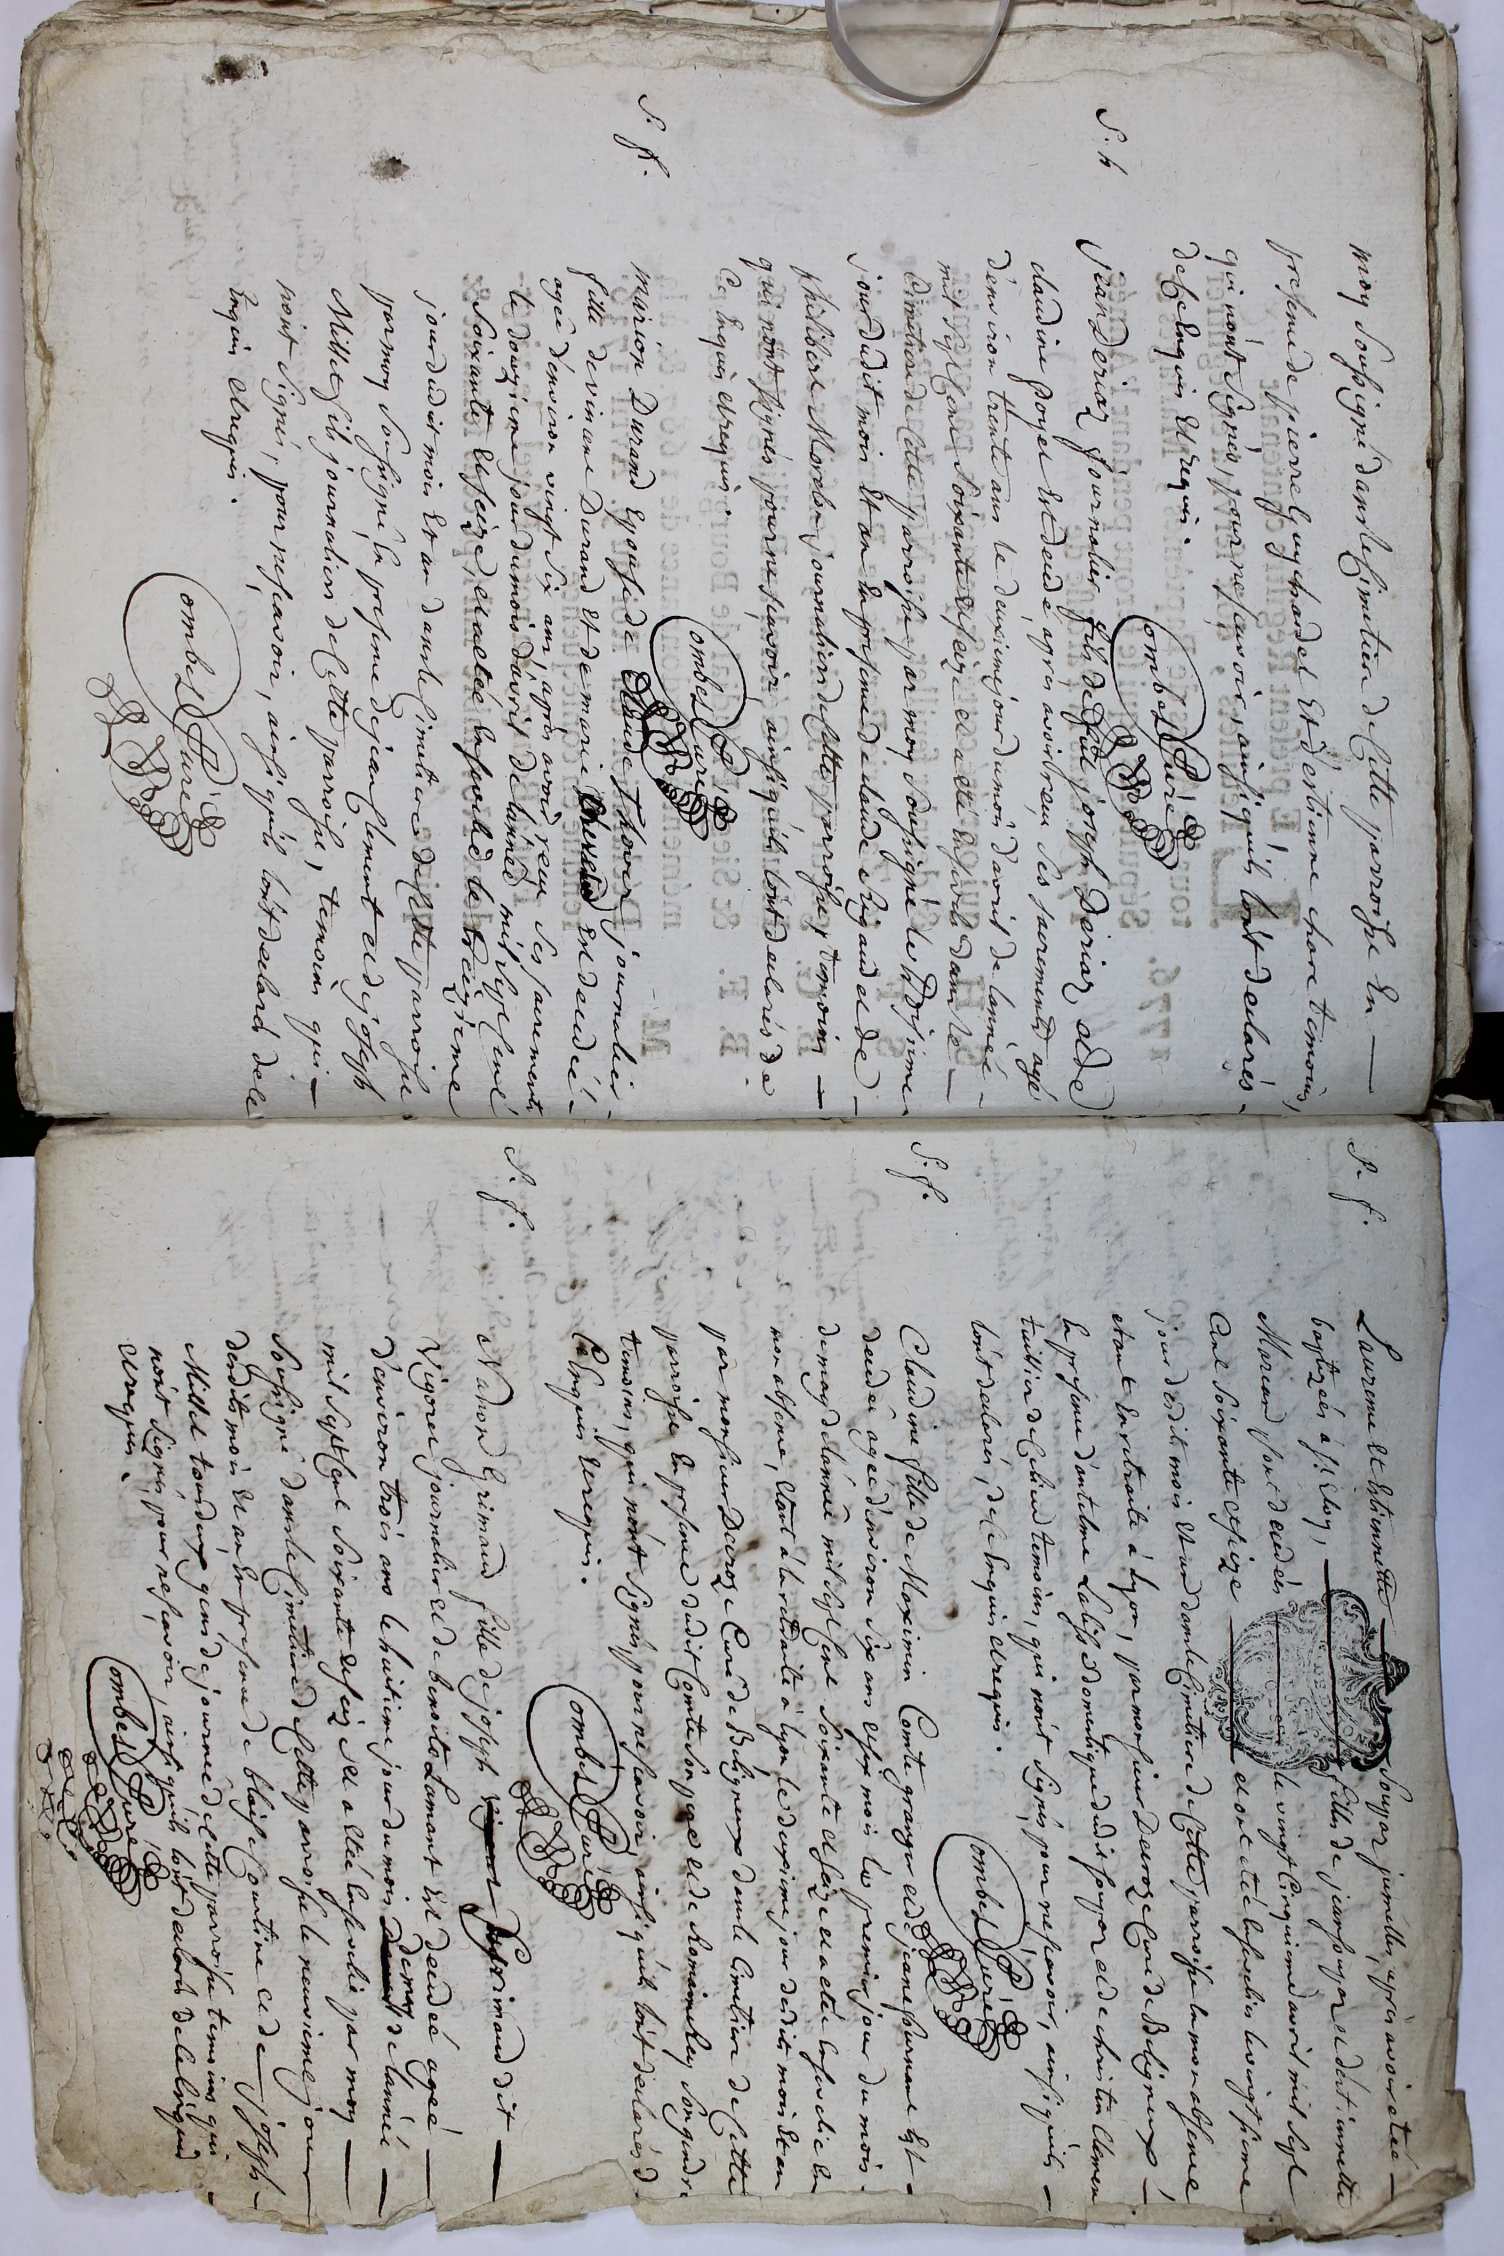 moy soussigné dans le cimetiere de cette parroisse en
presence de pierre guychardet et d'estienne chare temoins,
qui n'ont signés, pour ne sçavoir, ainsi quils l'ont declarés
de ce enquis et requis.
Combet Curé
S. h
Jean Deriaz journalier fils de feu joseph Deriaz et de
claudine goyet est decedé, apres avoir reçu ses sacrements agé
d'environ trente ans le deuxieme jour du mois d'avril de l'année
mil sept cent soixante et seize et a été enseveli dans le
cimetiere de cette parroisse par moy soussigné le troisieme
jour dudit mois et an en presence de claude Rigaud et de
philibert Morel journaliers de cette parroisse, temoins
qui n'ont signés pour ne sçavoir, ainsi quils l'ont declarés de
ce enquis et requis.
Combet Curé
S. f.
Marion Durand epouse de claude journalier
fille de vincent Durand et de marie est decedée
agée d'environ vingt six ans, apres avoir reçu ses sacrements
le douzieme jour du mois d'avril de l'année mil sept cent
soixante et seize, et a été ensevelie le treizieme
jour dudit mois et an dans le cimetiere de cette parroisse
par moy soussigné en presence de jean Clement et de joseph
Millet fils journaliers de cette parroisse, temoins qui
n'ont signés, pour ne sçavoir, ainsi quils l'ont declarés de ce
enquis et requis.
Combet Curé
S. f.
Laurence et Estiennette Soupar jumelles, après avoir eté
baptizées à fille de jean soupar et d'estiennette
Morand sont decedées le vingt cinquieme avril mil sept
cent soixante et seize et ont été ensevelies le vingt sixieme
jour desdits mois et an dans le cimetiere de cette parroisse en mon absence,
etant en retraite à Lyon, par monsieur Deroze Curé de Beligneux
en presence d'antelme domestique dudit soupar et de christin clement
tuillier de ce lieu temoins, qui n'ont signés, pour ne sçavoir, ainsi quils
l'ont declarés, de ce enquis et requis.
Combet Curé
S. f.
Claudine fille de Maximin Comte granger et de jeanne est
decedée agée d'environ six ans et six mois le premier jour du mois
de may de l'année mil sept cent soixante et seize et a été ensevelie en
mon absence, etant à la retraite à lyon le deuxieme jour desdits mois et an
par monsieur Deroze Curé de Beligneux dans le cimetiere de cette
parroisse en presence dudit Comte son pere et de Romain Rey son gendre
temoins, qui n'ont signés, pour ne sçavoir, ainsi quils l'ont declarés de
ce enquis et requis.
Combet Curé
S. f.
Nahon Grimand fille de joseph Grimand dit
Vigoret journalier et de benoite Lamant est decedée agée
d'environ trois ans le huitieme jour du mois de may de l'année
mil sept cent soixante et seize et a eté ensevelie par moy
soussigné dans le cimetiere de cette parroisse le neuvieme jour
desdits mois et an en presence de blaise Courtine et de joseph
Millet tous deux gens de journée de cette parroisse temoins qui
n'ont signés, pour ne sçavoir, ainsi quils l'ont declarés de ce enquis
et requis.
Combet Curé